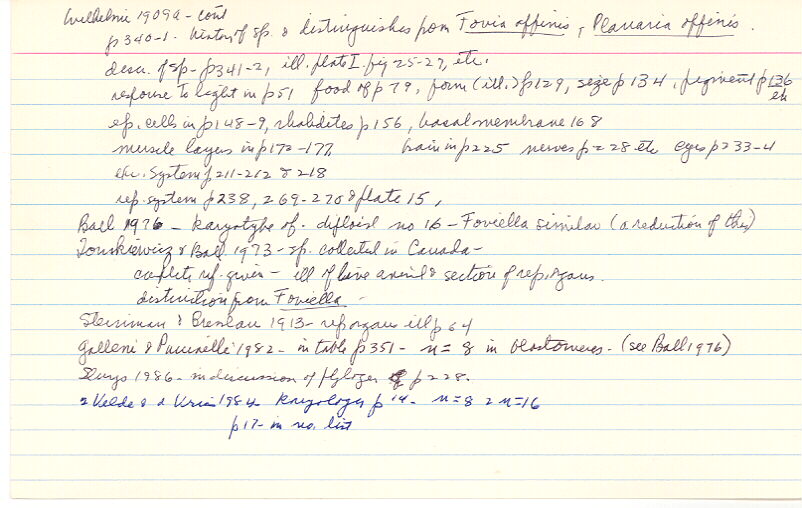 Wilhelmi 1909a - cont
p340-1. history of sp. & distinguishes from Fovia affinis, Planaria affinis.
descr. of sp - p341-2, ill. plate I. fig 25-27, etc.
response to light in p51 food of p79, form (ill.) p129, size p134, pigment p136 etc
ep. cells in p148-9, rhabdites p156, basal membrane 168
muscle layers in p172-177, brain in p225 nerves p228 etc eyes p233-4
exc. system p211-212 & 218
rep. system p238, 269-270 & plate 15,
Ball 1976 - karyotype of. diploid no 16 - Foviella similar (a reduction of this)
& Ball 1973 - sp. collected in Canada -
complete ref. given - ill of live animal & section of rep. organs.
distinction from Foviella -
Steinmann & Bresslau 1913 - rep organs ill p64
Galleni & Puccinelli 1982 - in table p351 - n = 8 in blastomeres - (see Ball 1976)
Sluys 1986 - in discussion of p228.
1984 karyology p14 - n=8 2n=16
p17 - in no. list